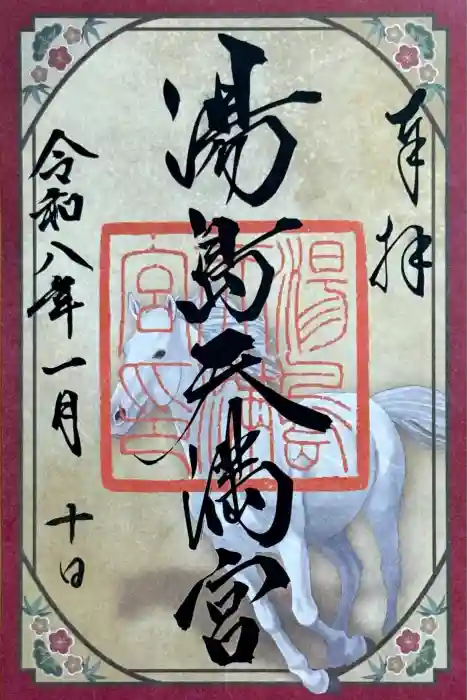 奉拝
湯島天満宮
令和八年一月十日
湯島
天満
宮之印